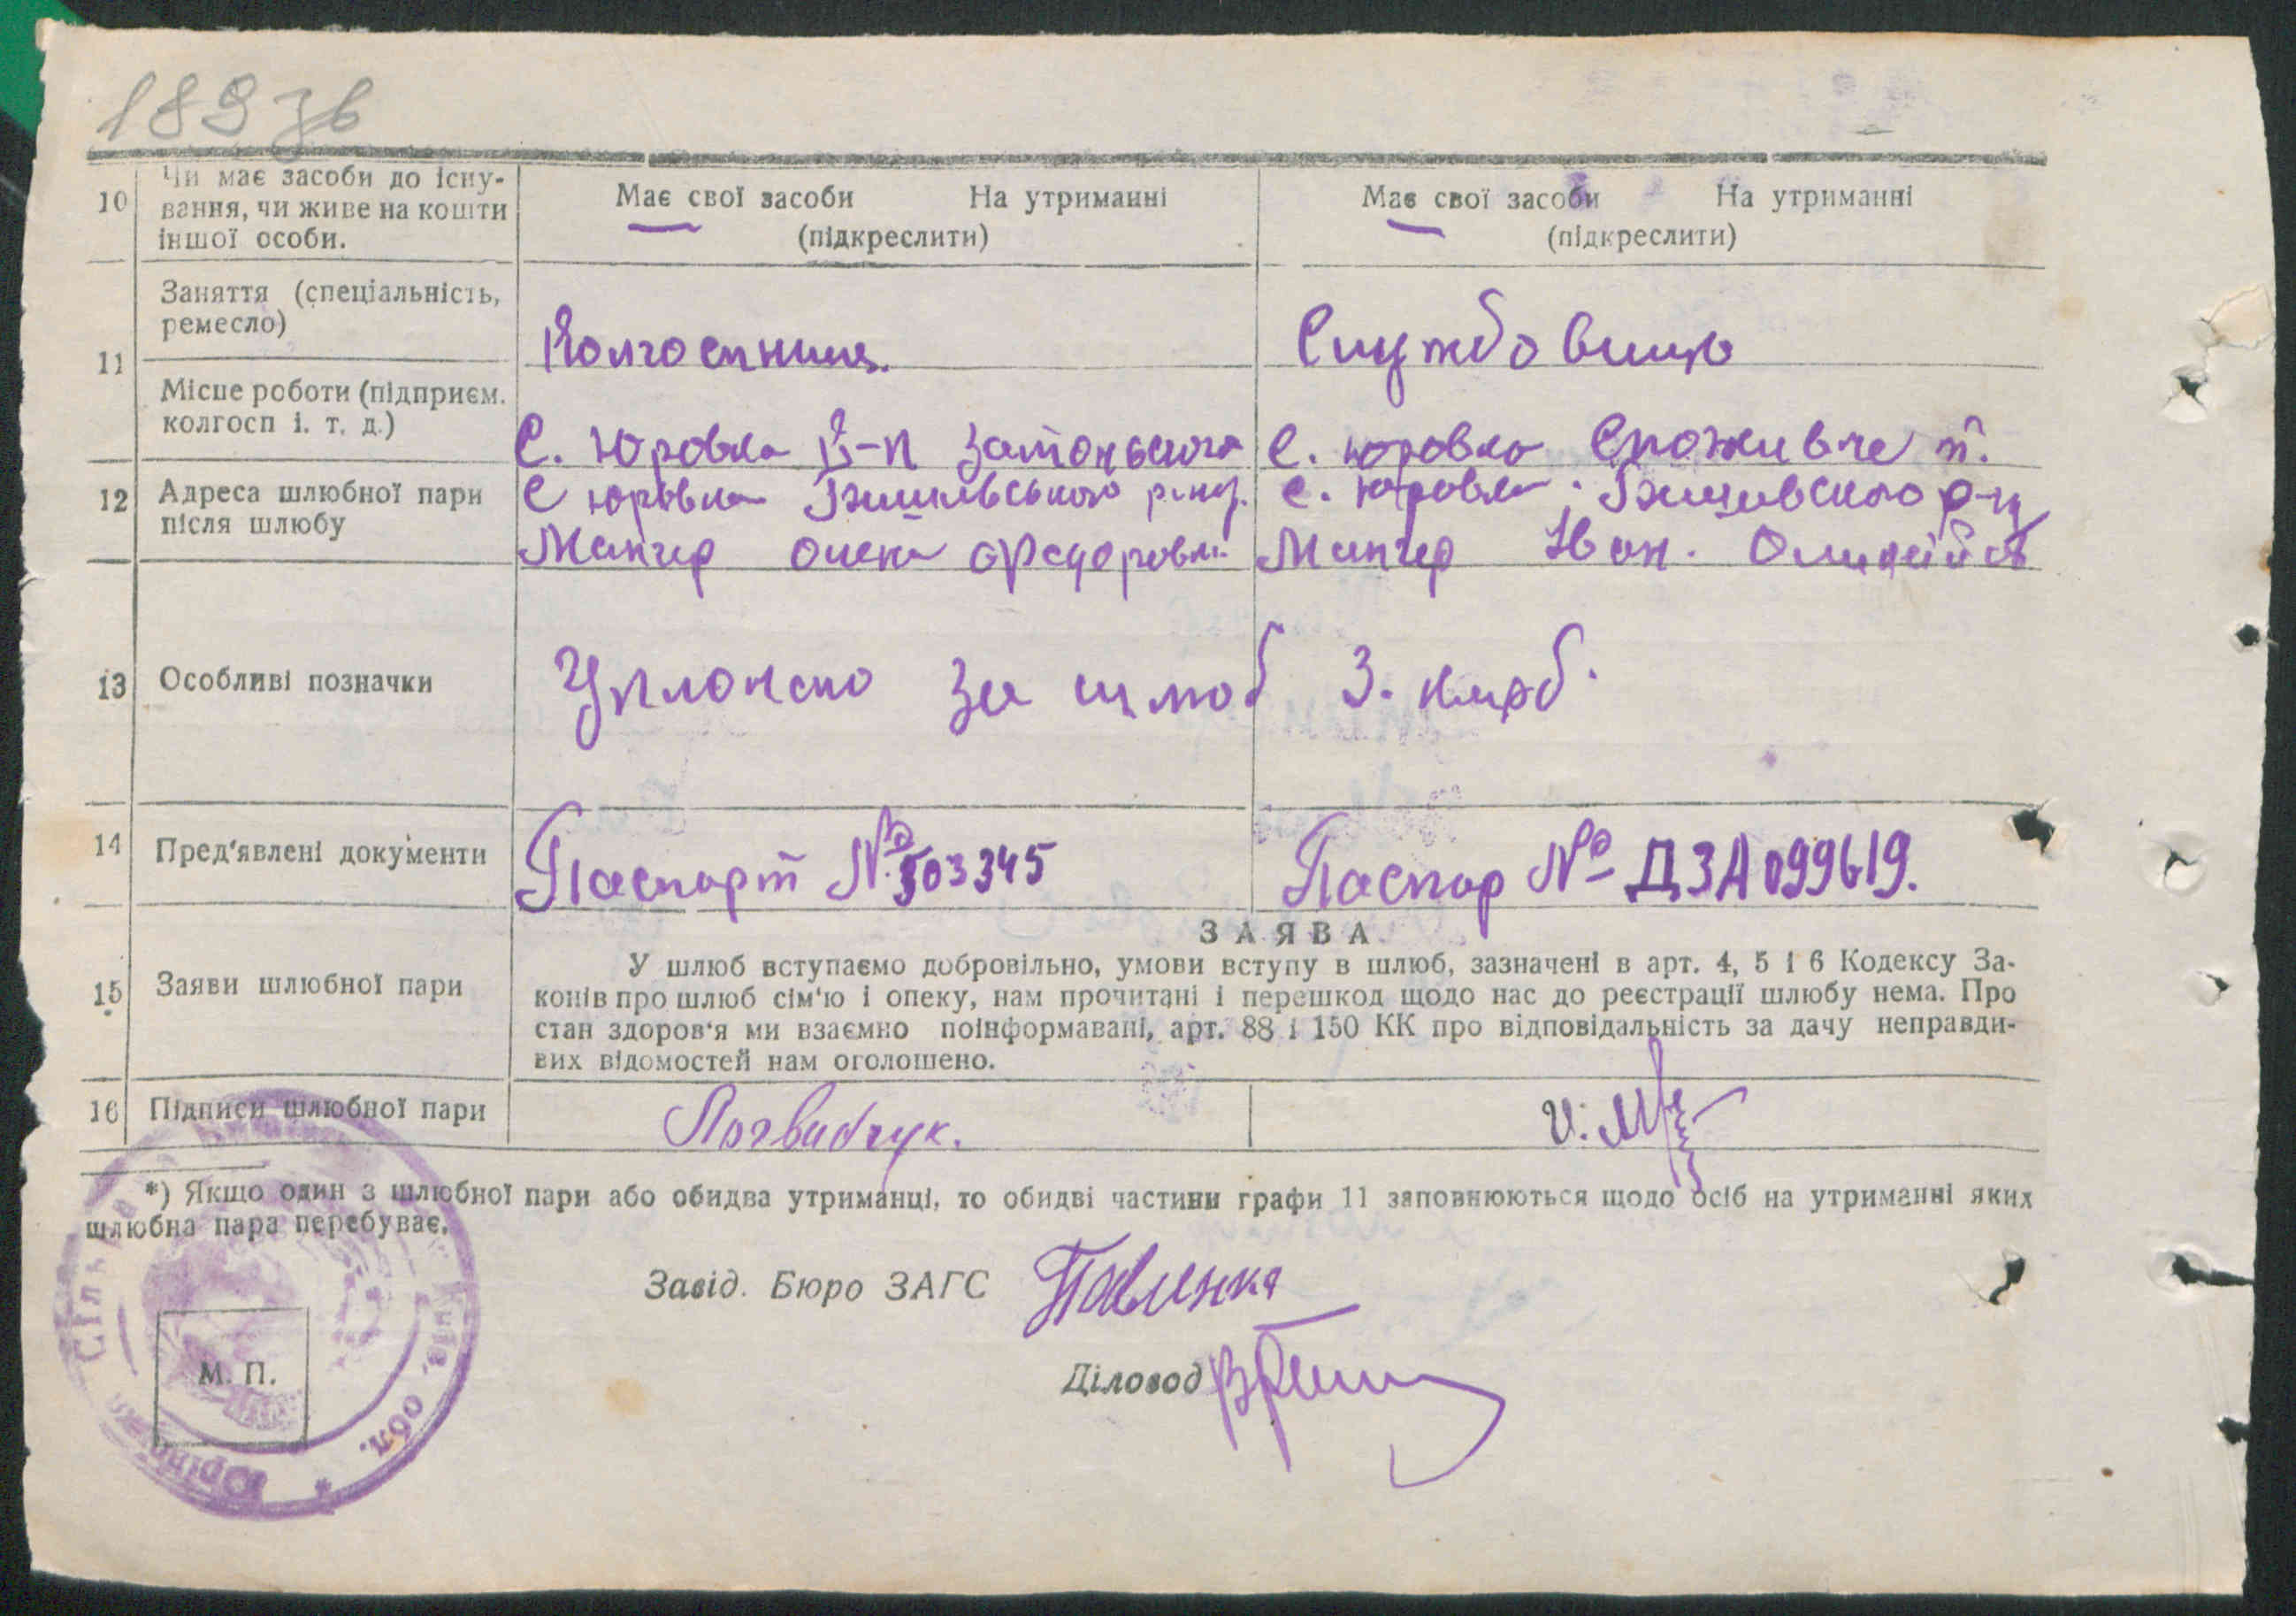 189 зв
10 Чи має засоби до існу-
вання, чи живе на кошти
іншої особи.
Має свої засоби На утриманні
(підкреслити)
Має свої засоби На утриманні
(підкреслити)
11 Заняття (спеціальність,
ремесло)
Колгоспниця.
Службовець
Місце роботи (підприєм.
колгосп і. т. д.)
С. Юровка Затонського
с. Юровка Споживче т.
12 Адреса шлюбної пари
після шлюбу
с Юровка
с. Юровка
Федоровна
13 Особливі позначки
за шлюб 3. карб.
14 Пред'явлені документи
Паспорт № 503345
Паспор № ДЗА 099619.
15 Заяви шлюбної пари
ЗАЯВА
У шлюб вступаємо добровільно, умови вступу в шлюб, зазначені в арт. 4, 5 і 6 Кодексу За-
конів про шлюб сім'ю і опеку, нам прочитані і перешкод щодо нас до реєстрації шлюбу нема. Про
стан здоров'я ми взаємно поінформавані, арт. 88 і 150 КК про відповідальність за дачу неправди-
вих відомостей нам оголошено.
16 Підписи шлюбної пари
*) Якщо один з шлюбної пари або обидва утриманці, то обидві частини графи 11 заповнюються щодо осіб на утриманні яких
шлюбна пара перебуває.
Завід. Бюро ЗАГС Павленка
Діловод
М. П.
обл.